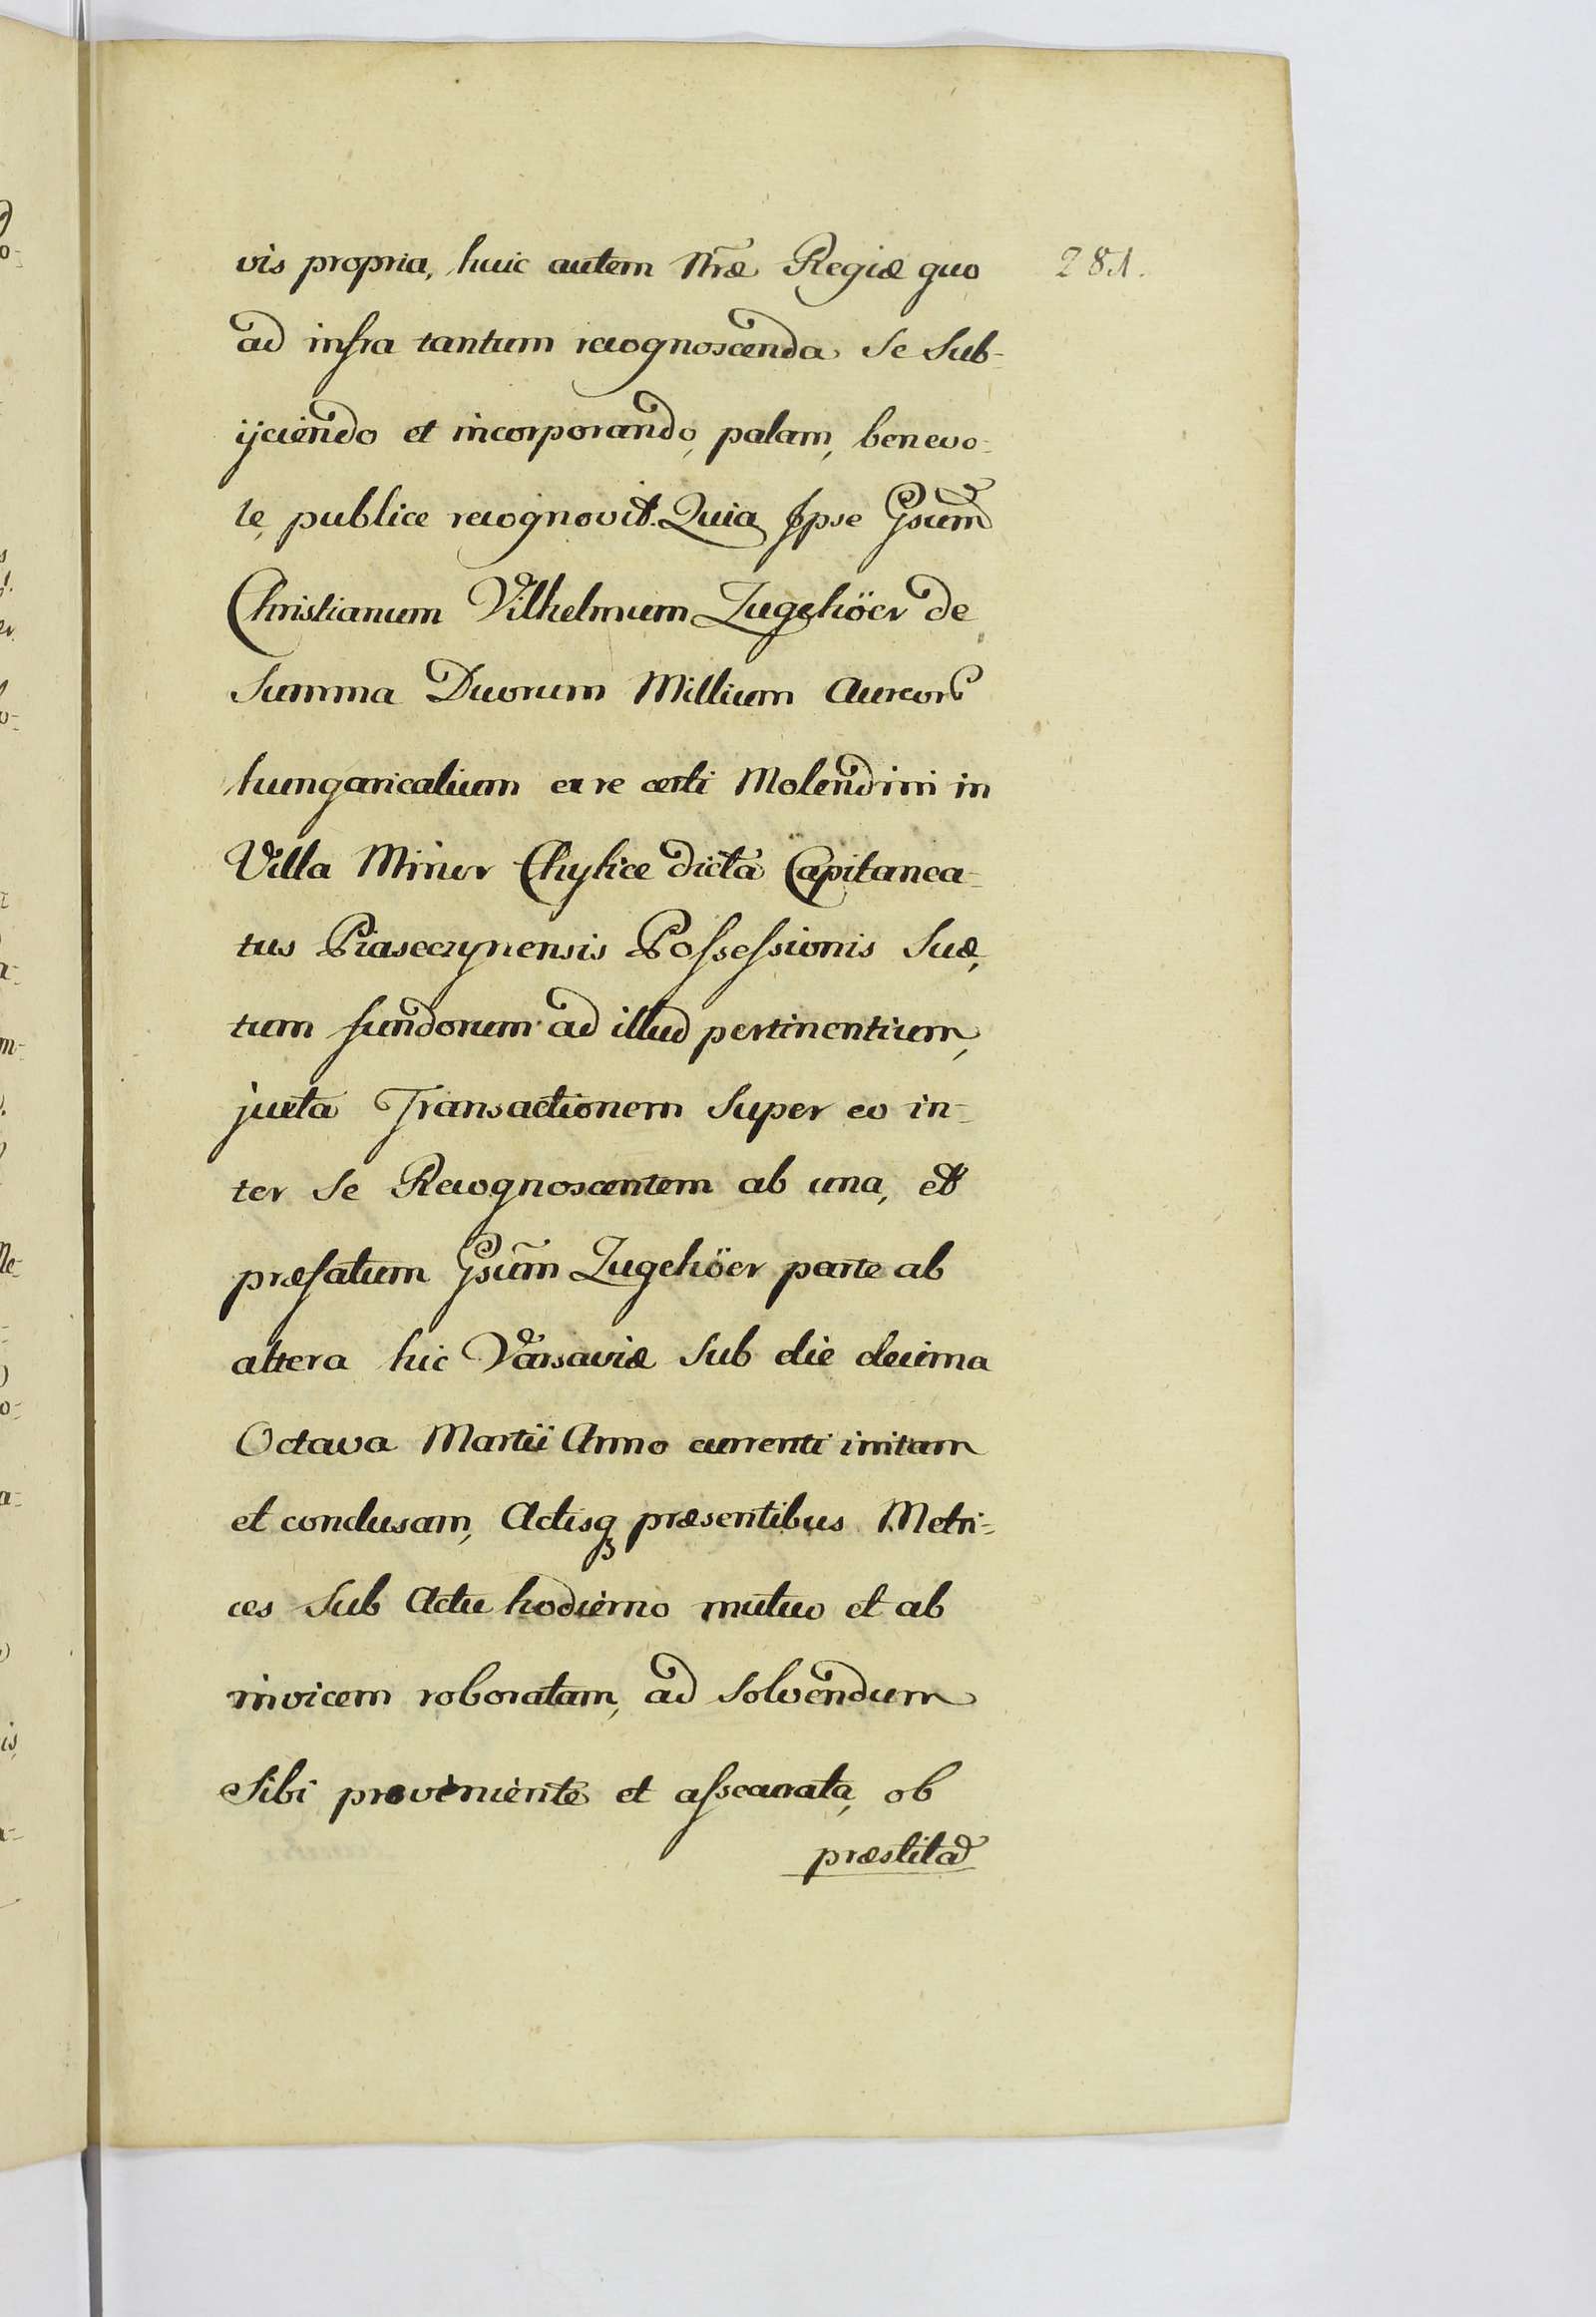 vis propria, huic autem Mræ Regiæ quo 281.
ad infra tantum recognoscenda se sub-
ijciendo et incorporando, palam, benevo-
le, publice recognovit. Quia Ipse Gsum
Christianum Vilhelmum Zugehöer de
Summa Duorum Millium Aureor
hungaricalium ex re certi Molendini in
Villa Minor Chylice dicta Capitanea-
tus Piaseczynensis Possessionis suæ,
tum fundorum ad illud pertinentium,
juxta Transactionem super eo in-
ter se Recognoscentem ab una, et
præfatum Gsum Zugehöer parte ab
altera hic Varsaviæ sub die decima
Octava Martii Anno currenti initam
et conclusam, Actisq præsentibus Metri-
ces sub Actu hodierno mutuo et ab
invicem roboratam, ad solvendum
Sibi proveniente et assecurata, ob
præstita